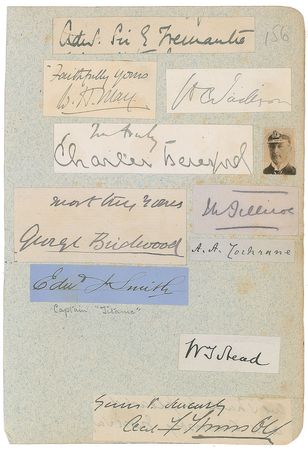 Adml. Sir E Fremantle
156
Faithfully yours
W. H. May
H C Jackson
Yrs truly
Charles Beresford
most truly Yours
George Birdwood
A. A. Cochrane
Edwd J Smith
Captain "Titanic"
W T Stead
Yours v. sincerely
Cecil F